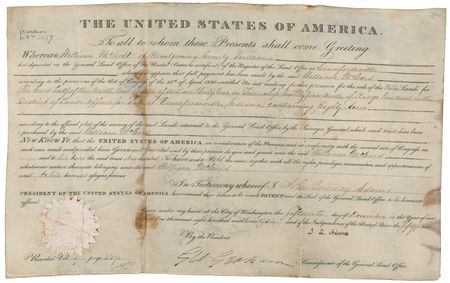 THE UNITED STATES OF AMERICA.
To all to whom these Presents shall come, Greeting
Whereas William McCord of Montgomery County Indiana
has deposited in the General Land Office of the United States, a Certificate of the Register of the Land Office at Crawfordsville
whereby it appears that full payment has been made by the said William McCord
according to the provisions of the Act of Congress of the 24th of April 1820 entitled An act making further provision for the sale of the Public Lands for
The East half of the North
District of Lands offered for Sale at Crawfordsville Indiana containing Eighty Acres
according to the official plat of the survey of the said Lands returned to the General Land Office by the Surveyor General which said tract has been
purchased by the said William McCord
Now Know Ye that the UNITED STATES OF AMERICA, in consideration of the Premises and in conformity with the several acts of Congress in
such case made and provided have Given and Granted and by these presents do give and grant unto the said William McCord
and to his heirs the said tract above described To have and to Hold the same together with all the rights privileges immunities and appurtenances of
whatsoever nature thereunto belonging unto the said William McCord
and to his heirs and assigns forever
In Testimony whereof I John Quincy Adams
PRESIDENT OF THE UNITED STATES OF AMERICA have caused these letters to be made PATENT and the Seal of the General Land Office to be hereunto
affixed
Given under my hand at the City of Washington the fifteenth day of December in the Year of our
Lord one thousand eight hundred and and of the Independence of the United States the
By the President
J. Q. Adams
Geo Graham Commissioner of the General Land Office
Recorded Vol page